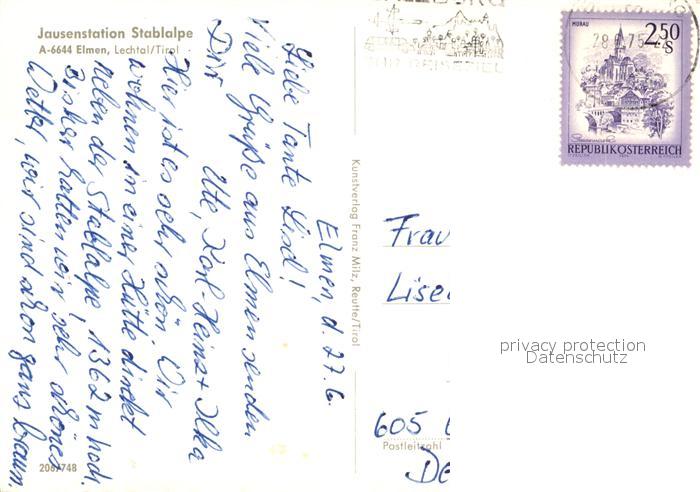 Jausenstation Stablalpe
A-6644 Elmen, Lechtal/Tirol
Elmen, d. 27.6.
Liebe Tante Lisel!
Viele Grüße aus Elmen senden
Dir
Ute, Karl-Heinz + Ilka
Hier ist es sehr schön. Wir
wohnen in einer Hütte direkt
neben der Stablalpe! 1362 m hoch.
Bisher hatten wir sehr schönes
Wetter, wir sind schon ganz braun.
208/748
Kunstverlag Franz Milz, Reutte/Tirol
MURAU
2.50
S
28
75
Steiermark
REPUBLIK ÖSTERREICH
Frau
Lise
privacy protection
Datenschutz
605
Postleitzahl
De